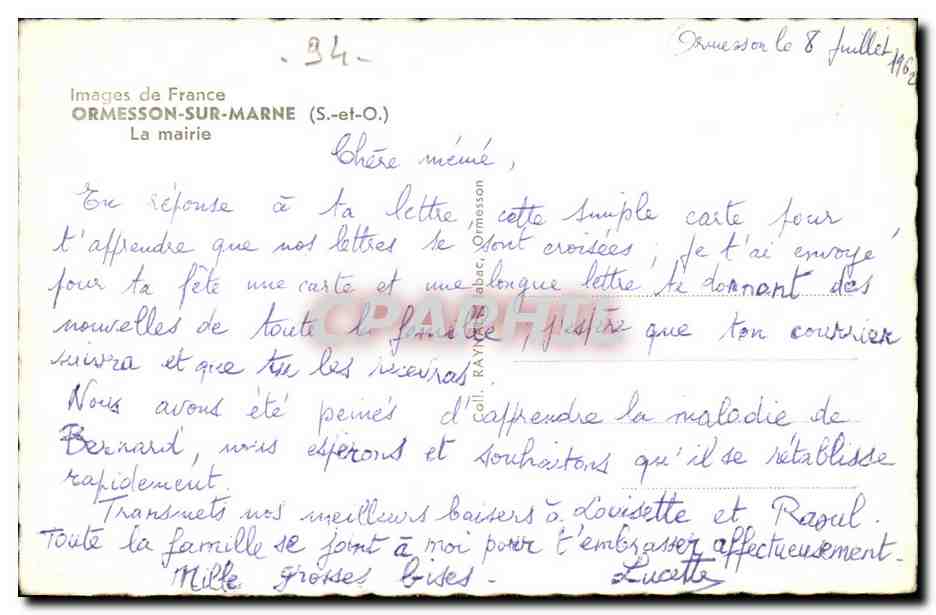 - 94 -
Ormesson le 8 Juillet 1962
Images de France
ORMESSON-SUR-MARNE (S.-et-O.)
La mairie
Chère mémé,
En réponse à ta lettre, cette simple carte pour
t'apprendre que nos lettres se sont croisées, je t'ai envoyé
pour ta fête une carte et une longue lettre te donnant des
nouvelles de toute la famille, j'espère que ton courrier
suivra et que tu les recevras.
Nous avons été peinés d'apprendre la maladie de
Bernard, nous espérons et souhaitons qu'il se rétablisse
rapidement.
Transmets nos meilleurs baisers à Louisette et Raoul.
Toute la famille se joint à moi pour t'embrasser affectueusement.
Mille grosses bises - Lucette
Coll. Tabac, Ormesson
CPAPHIL